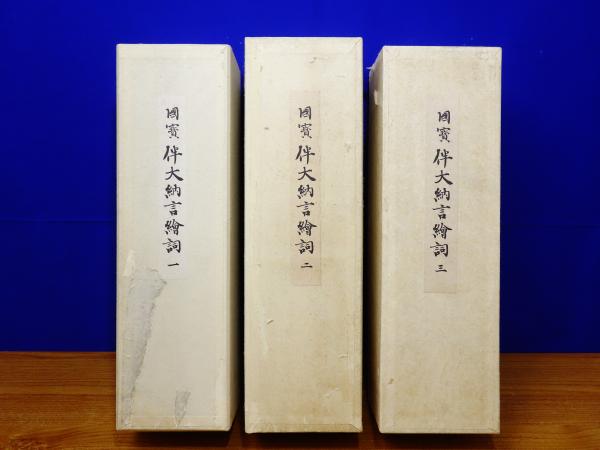 國寳 伴大納言繪詞 一
國寳 伴大納言繪詞 二
國寳 伴大納言繪詞 三